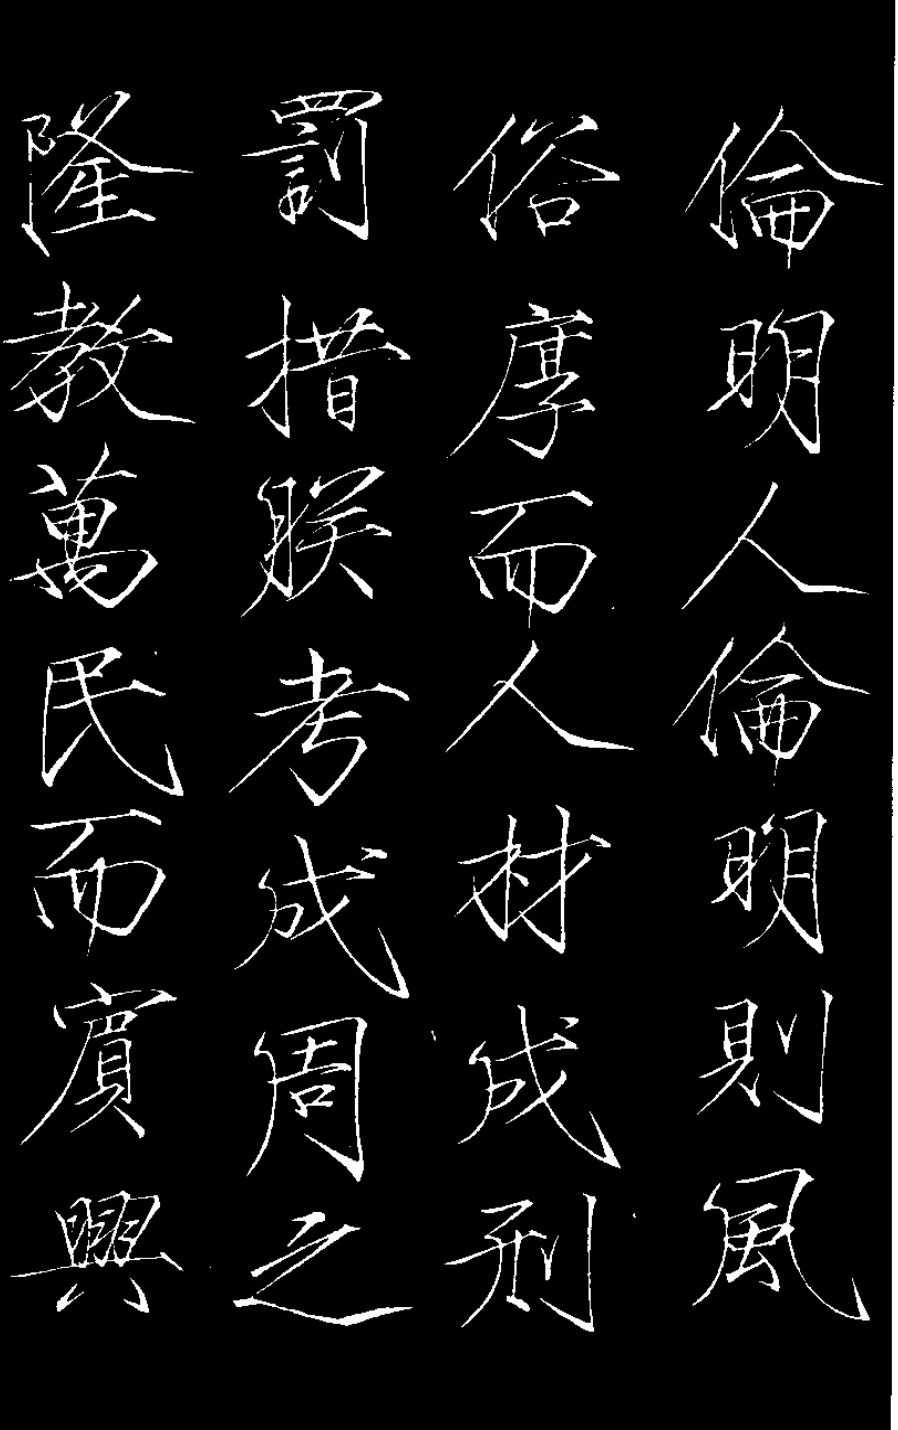 倫明人倫明則風
俗厚而人材成刑
罰措朕考成周之
隆教萬民而賓興